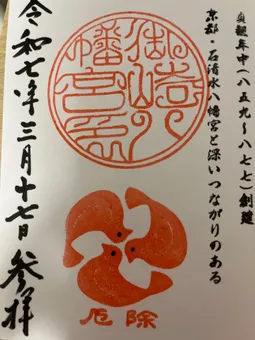 貞観年中(八五九〜八七七)創建
京都・石清水八幡宮と深いつながりのある
厄除
令和七年三月十七日参拝